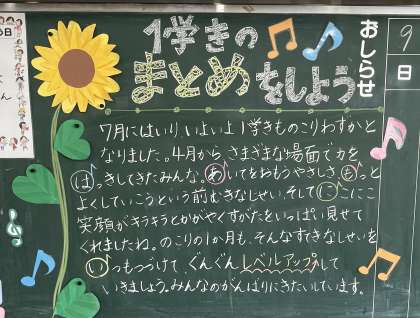 1学きの
まとめをしよう
おしらせ
9
日
7月にはいり、いよいよ1学きものこりわずかと
なりました。4月から、さまざまな場面で力を
はっきしてきたみんな。あいてをおもうやさしさ、もっと
よくしていこうという前むきなしせい、そしてにこにこ
笑顔がキラキラとかがやくすがたをいっぱい見せて
くれましたね。のこりの1か月も、そんなすてきなしせいを
いつもつづけて、ぐんぐんレベルアップして
いきましょう。みんなのがんばりにきたいしています。